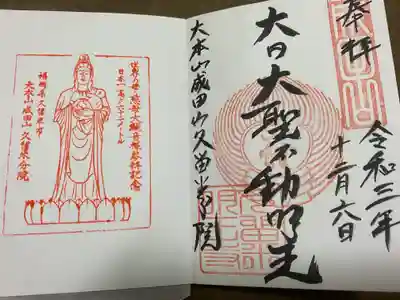 奉拝
令和三年
十二月六日
大日大聖不動明王
大本山成田山久留米分院
世界之母 慈母大観音像参拝記念
日本一高さ六二メートル
福岡県久留米市
大本山成田山 久留米分院